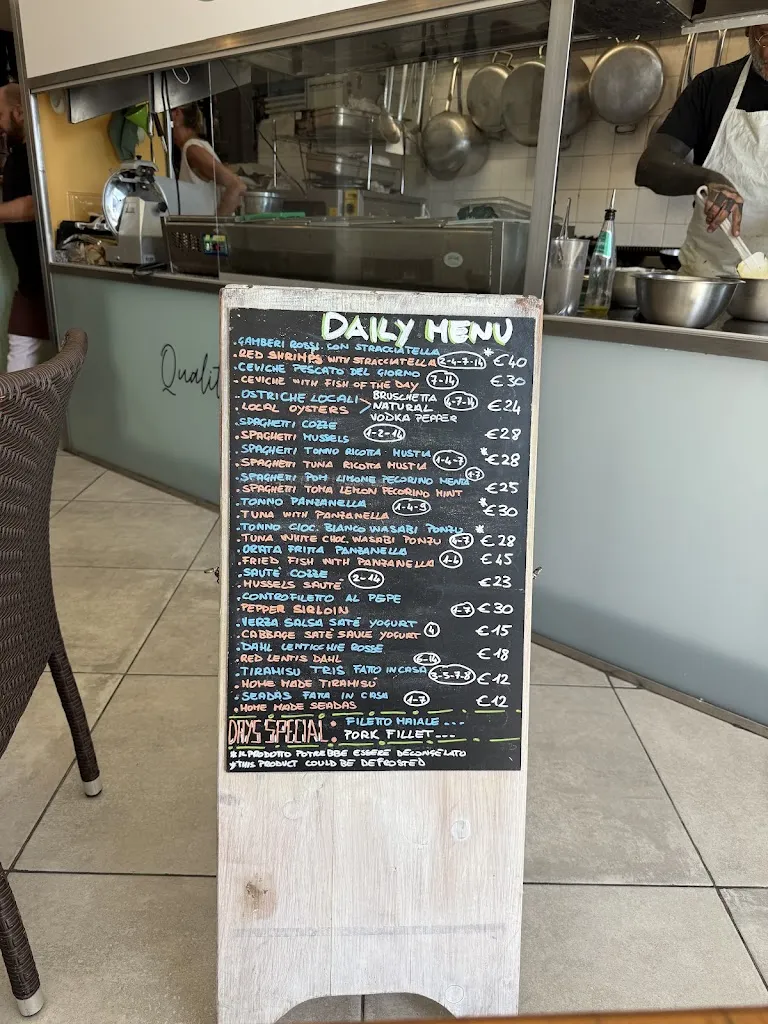 Qualit
DAILY MENU
GAMBERI ROSSI CON STRACCIATELLA
.RED SHRIMPS WITH STRACCIATELLA 2-4-7-14 * €40
CEVICHE PESCATO DEL GIORNO
.CEVICHE WITH FISH OF THE DAY 7-14 €30
.OSTRICHE LOCALI BRUSCHETTA
.LOCAL OYSTERS NATURAL 6-7-14 €24
VODKA PEPPER
.SPAGHETTI COZZE
.SPAGHETTI MUSSELS 1-2-14 €28
.SPAGHETTI TONNO RICOTTA MUSTIA
.SPAGHETTI TUNA RICOTTA MUSTIA 1-4-7 * €28
.SPAGHETTI POM LIMONE PECORINO MENTA 1-7
.SPAGHETTI TOMA LEMON PECORINO MINT €25
.TONNO PANZANELLA
.TUNA WITH PANZANELLA 1-4-9 * €30
.TONNO CIOC. BIANCO WASABI PONZU *
.TUNA WHITE CHOC. WASABI PONZU 6-7 €28
.ORATA FRITTA PANZANELLA
.FRIED FISH WITH PANZANELLA 1-4 €45
.SAUTÈ COZZE
.MUSSELS SAUTÈ 2-14 €23
.CONTROFILETTO AL PEPE
.PEPPER SIRLOIN €30
.VERZA SALSA SATÈ YOGURT
.CABBAGE SATÈ SAUCE YOGURT €15
.DAHL LENTICCHIE ROSSE
.RED LENTIS DAHL 6-14 €18
.TIRAMISU TRIS FATTO IN CASA
.HOME MADE TIRAMISU 3-5-7-8 €12
.SEADAS FATTA IN CASA
.HOME MADE SEADAS 1-7 €12
DAYS SPECIAL: FILETTO MAIALE ...
PORK FILLET...
* IL PRODOTTO POTREBBE ESSERE DECONGELATO
*THIS PRODUCT COULD BE DEFROSTED